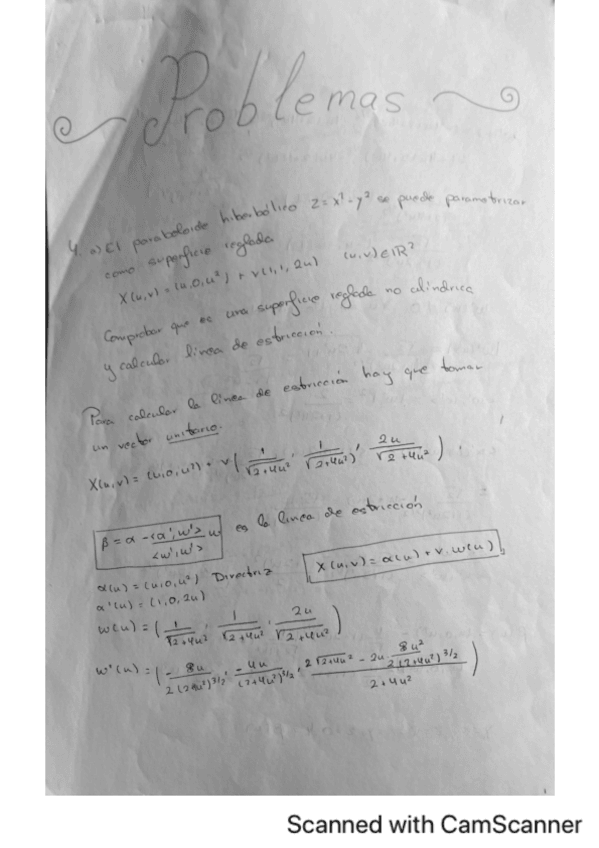 Problemas
4. a) El paraboloide hiberbólico z = x² - y² se puede parametrizar
como superficie reglada
X(u,v) = (u,0,u²) + v(1,1,2u) (u,v) ∈ ℝ²
Comprobar que es una superficie reglada no cilíndrica
y calcular línea de estricción.
Para calcular la línea de estricción hay que tomar
un vector unitario.
X(u,v) = (u,0,u²) + v(1/√(2+4u²), 1/√(2+4u²), 2u/√(2+4u²)).
β = α - <α',w'>/<w',w'> w es la línea de estricción
α(u) = (u,0,u²) Directriz X(u,v) = α(u) + v.w(u)
α'(u) = (1,0,2u)
w(u) = (1/√(2+4u²), 1/√(2+4u²), 2u/√(2+4u²))
w'(u) = (- 8u/2(2+4u²)^3/2, -4u/(2+4u²)^3/2, (2√(2+4u²) - 2u 8u²/2(2+4u²)^3/2)/(2+4u²))
Scanned with CamScanner